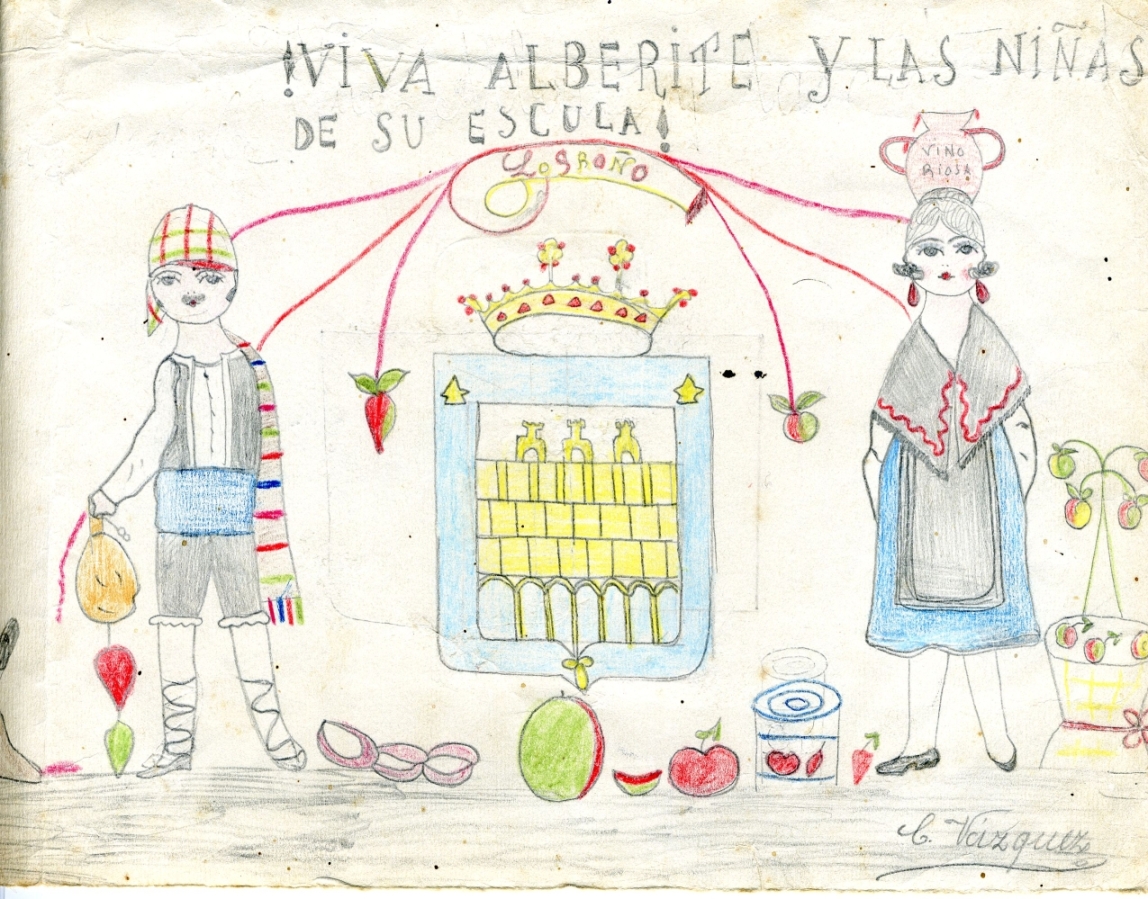 ¡VIVA ALBERITE Y LAS NIÑAS
DE SU ESCULA!
LOGROÑO
VINO
RIOJA
C. Vázquez